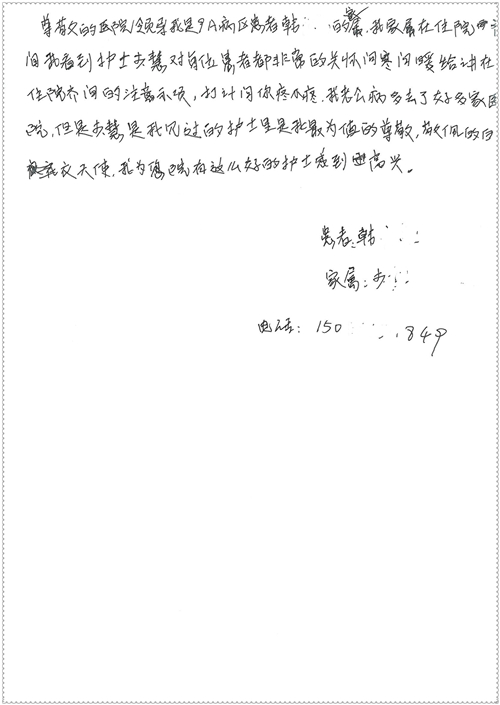 尊敬的医院领导我是9A病区患者韩 的 我家属在住院
间我看到护士步慧对每位患者都非常的关怀问寒问暖给讲在
住院养间的注意示项，打针问你疼不疼，我老公病多去了好多家医
院，但是步慧是我见过的护士里是我最为值的尊敬，敬佩的白
衣天使，我为您院有这么好的护士感到 高兴。
患者：韩
家属：步
电话：150 849